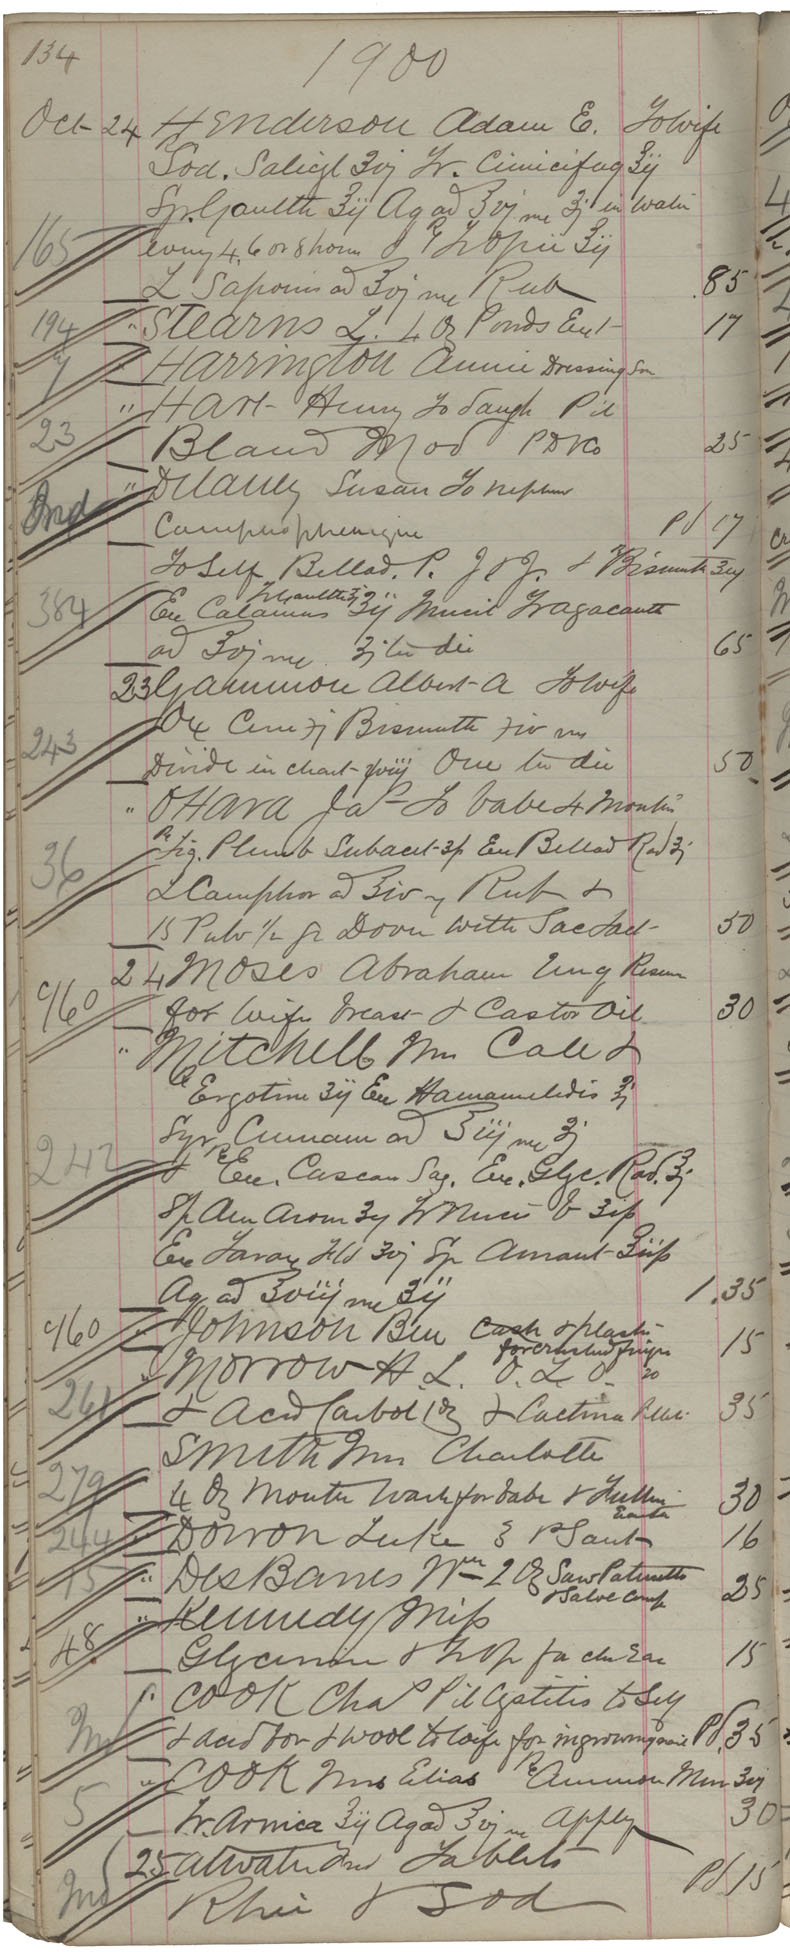 134
1900
Oct 24 Henderson Adam E. To wife
Sod. Salicyl ʒvj Tr. Cimicifug ʒij
Sp. Gaulth ʒij Aq ad ℥vj ʒj in water
165 every 4, 6 or 8 hours & ℞ Tr Opii ʒij
L Saponis ad ℥vj Rub .85
194 " Stearns L. 4 oz Ponds Ext 17
7 " Harrington Annie Dressing
" Hart Henry To Daugh Pil
23 Blaud Mod P D & Co 25
" Delaney Susan To nephew
Ind Camphophenique Pd 17
To Self Bellad. P. J & J. & ℞ Bismuth
Tr Gaulth
384 Ex Calamus ʒij Mucil Tragacanth
ad ℥vj ʒj ter die 65
23 Gammon Albert A To wife
Ox Cerii Bismuth
243 Divide in chart One ter die 50
" OHara Jas To babe 4 Months
℞ Liq. Plumb Subacet Ex Bellad Rad ʒj
36 L Camphor ad ℥iv Rub &
15 Pulv ½ gr Dover with Sac Lact 50
24 Moses Abraham Ung Resin
960 for wifes breast & Castor Oil 30
" Mitchell Mrs Cale &
℞ Ergotine ʒij Ex Hamamelidis
Syr Cinnam ad ℥iij ʒj
242 & ℞ Ex. Cascar Sag. Ex. Glyc. Rad.
Sp Am Arom Tr Nucis V
Ex Tarax Fld ʒvj Sp Aurant
Aq ad ℥viij ʒij 1.35
960 " Johnson Ben Cash & plaster
for crushed finger 15
" Morrow H L. O. L. O.
261 & Acid Carbol 1 oz & Cactina Pills 35
Smith Mrs Charlotte
279 4 oz Mouth Wash for babe & Fullers
Earth 30
244 " Dowron Luke E P Sault 16
15 " DesBarres Wm 2 oz Saw Palmetto
& Salve Comp 25
" Kennedy Miss
48 Glycerine & Tr Op for chs Ear 15
" Cook Chas Pil Cystitis to Self
Ind & acid bor & wool to wife for ingrowing nail Pd .35
" Cook Mrs Elias ℞ Ammon Mur
5 Tr. Arnica ʒij Aq ad ℥vj Apply 30
25 Atwater Fred Tablets
Ind Rhei & Sod Pd 15